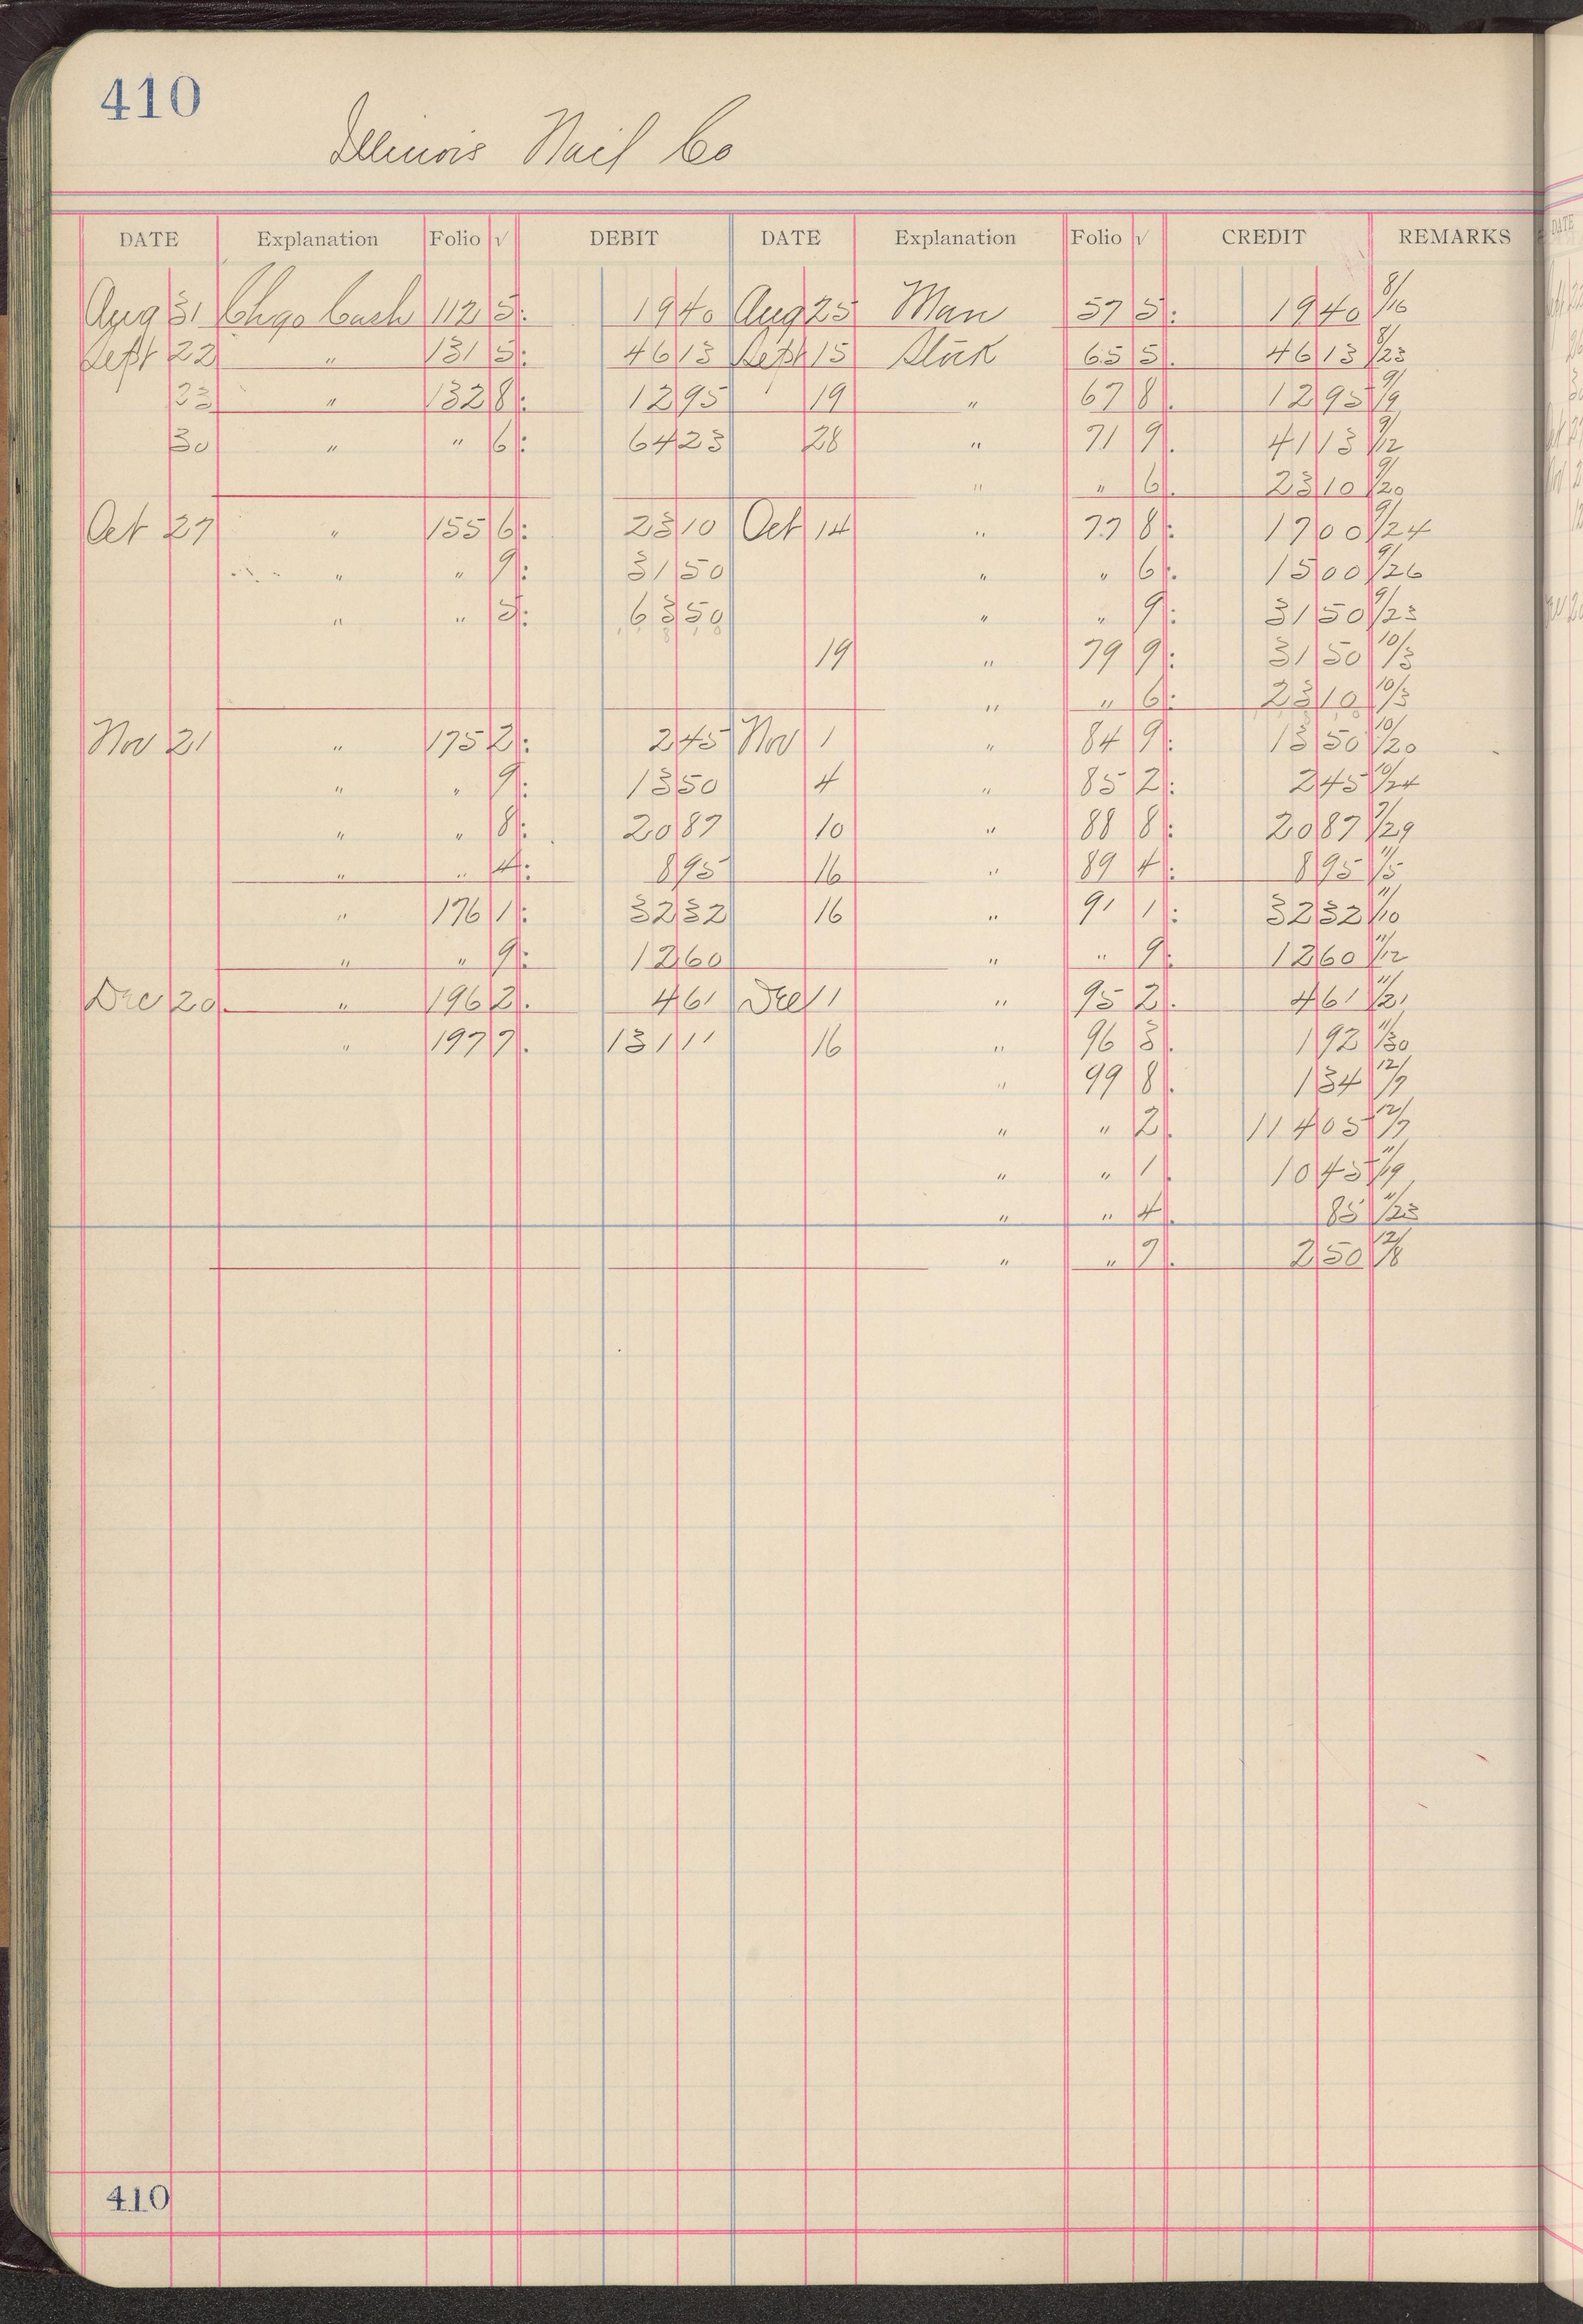 410
Illinois Nail Co
DATE Explanation Folio √ DEBIT DATE Explanation Folio √ CREDIT REMARKS
Aug 31 Chgo Cash 112 5 19 40 Aug 25 Man 57 5 19 40 8/16
Sept 22 " 131 5 46 13 Sept 15 Stuk 65 5 46 13 8/23
23 " 132 8 12 95 19 " 67 8 12 95 9/9
30 " " 6 64 23 28 " 71 9 41 13 9/12
" " 6 23 10 9/20
Oct 27 " 155 6 23 10 Oct 14 " 77 8 17 00 9/24
" " 9 31 50 " " 6 15 00 9/26
" " 5 63 50 " " 9 31 50 9/23
19 " 79 9 31 50 10/3
" " 6 23 10 10/3
Nov 21 " 175 2 2 45 Nov 1 " 84 9 13 50 10/20
" " 9 13 50 4 " 85 2 2 45 10/24
" " 8 20 87 10 " 88 8 20 87 /29
" " 4 8 95 16 " 89 4 8 95 11/5
" 176 1 32 32 16 " 91 1 32 32 11/10
" " 9 12 60 " " 9 12 60 11/12
Dec 20 " 196 2 4 61 Dec 1 " 95 2 4 61 11/21
" 197 7 131 11 16 " 96 3 1 92 11/30
" 99 8 1 34 12/7
" " 2 114 05 12/7
" " 1 10 45 11/19
" " 4 85 11/23
" " 7 2 50 12/8
410